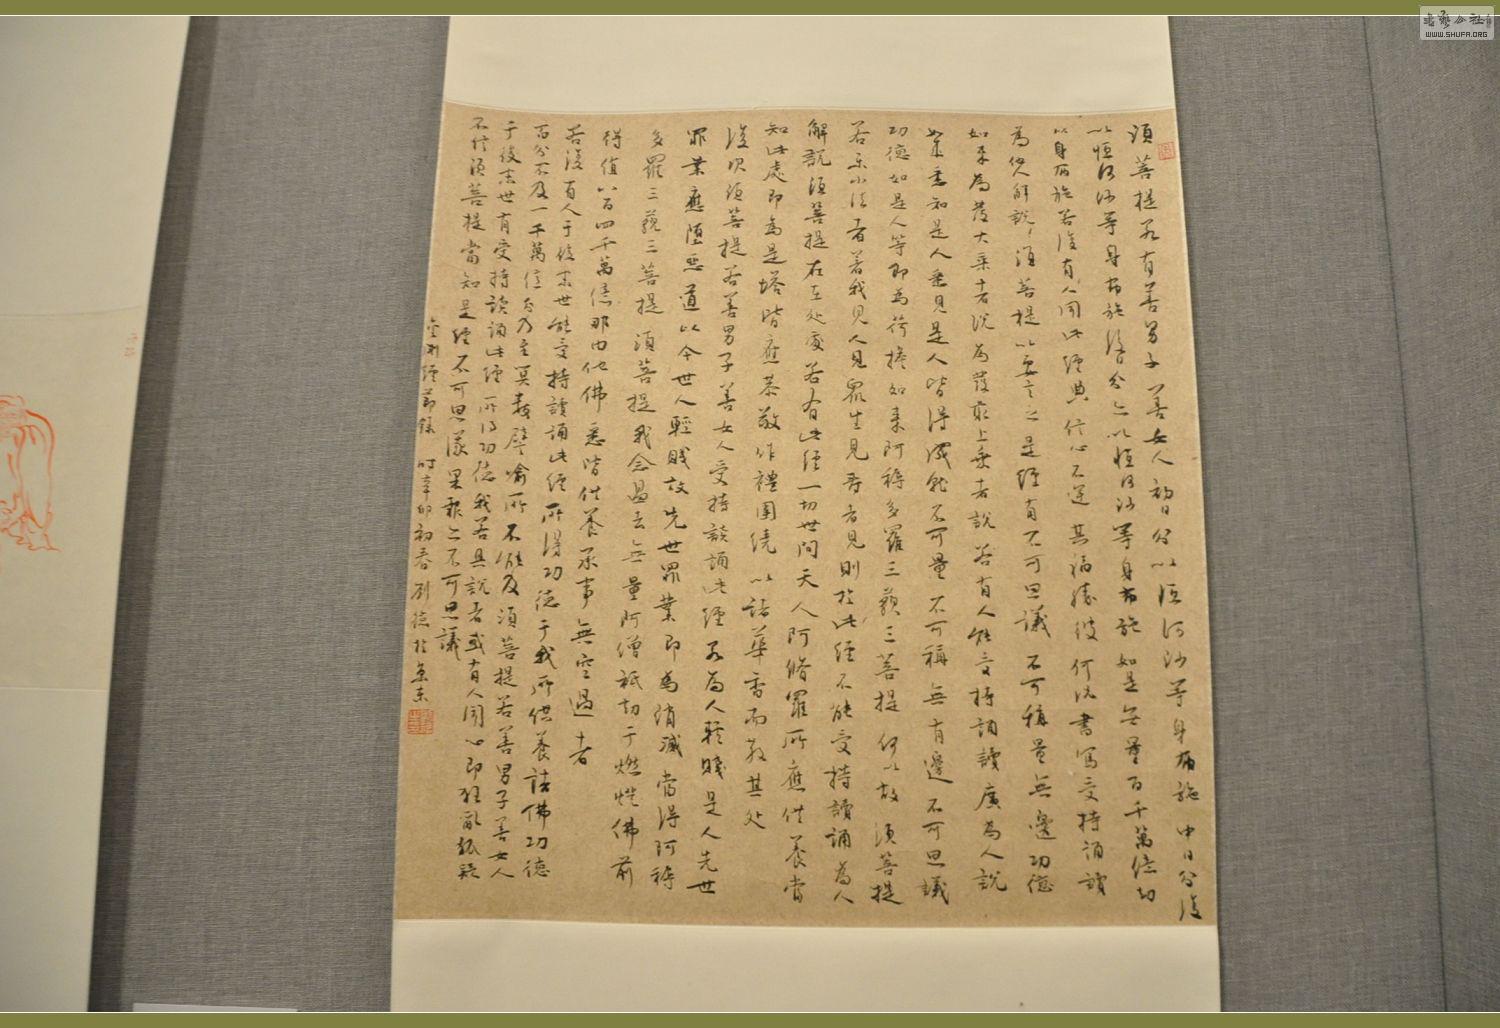 須菩提若有善男子善女人初日分以恒河沙等身布施中日分復
以恒河沙等身布施後日分亦以恒河沙等身布施如是無量百千萬億劫
以身布施若復有人聞此經典信心不逆其福勝彼何況書寫受持誦讀
為他人解說須菩提以要言之是經有不可思議不可稱量無邊功德
如來為發大乘者說為發最上乘者說若有人能受持誦讀廣為人說
如來悉知是人悉見是人皆得成就不可量不可稱無有邊不可思議
功德如是人等即為荷擔如來阿耨多羅三藐三菩提何以故須菩提
若樂小法者著我見人見眾生見壽者見則於此經不能受持讀誦為人
解說須菩提在在處處若有此經一切世間天人阿脩羅所應供養當
知此處即為是塔皆應恭敬作禮圍繞以諸華香而散其處
復次須菩提若善男子善女人受持讀誦此經若為人輕賤是人先世
罪業應墮惡道以今世人輕賤故先世罪業即為消滅當得阿耨
多羅三藐三菩提須菩提我念過去無量阿僧祇劫于燃燈佛前
得值八百四千萬億那由他佛悉皆供養承事無空過者
若復有人于後末世能受持讀誦此經所得功德于我所供養諸佛功德
百分不及一千萬億分乃至算數譬喻所不能及須菩提若善男子善女人
于後末世有受持讀誦此經所得功德我若具說者或有人聞心即狂亂狐疑
不信須菩提當知是經不可思議果報亦不可思議
金剛經節錄 時辛卯初春劉德於京東
書藝公社
WWW.SHUFA.ORG